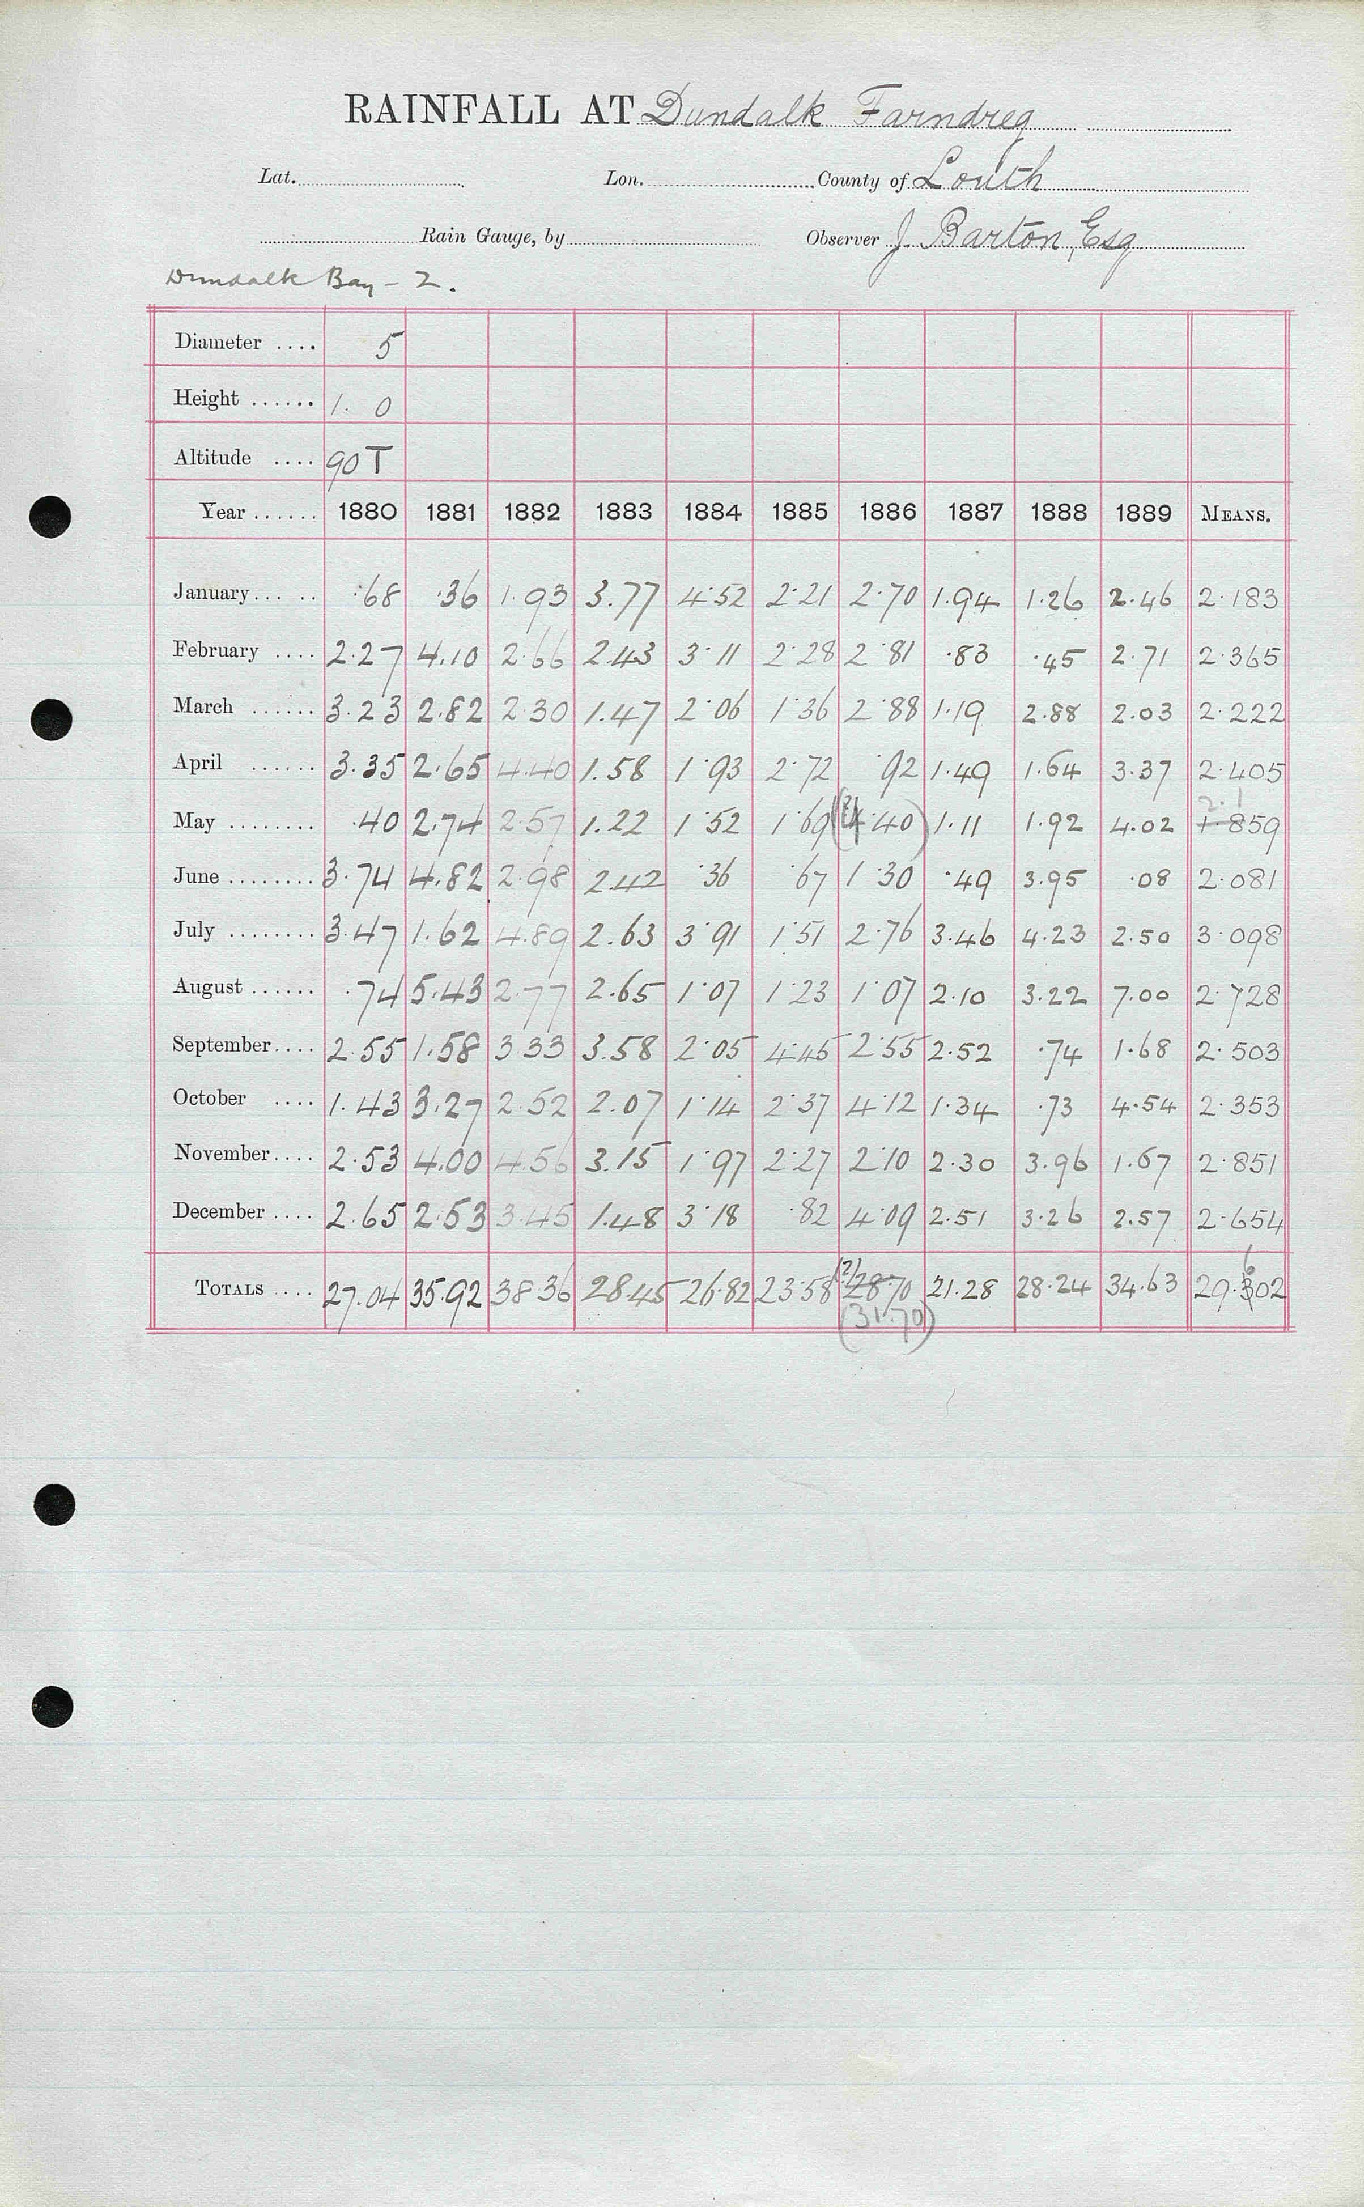 RAINFALL AT Dundalk Farndreg
Lat. Lon. County of Louth
Rain Gauge, by Observer J Barton, Esq
Dundalk Bay - 2.
Diameter .... 5
Height ...... 1. 0
Altitude .... 90 T
Year ...... 1880 1881 1882 1883 1884 1885 1886 1887 1888 1889 MEANS.
January... .. .68 .36 1.93 3.77 4.52 2.21 2.70 1.94 1.26 2.46 2.183
February .... 2.27 4.10 2.66 2.43 3.11 2.28 2.81 .83 .45 2.71 2.365
March ...... 3.23 2.82 2.30 1.47 2.06 1.36 2.88 1.19 2.88 2.03 2.222
April ...... 3.35 2.65 4.40 1.58 1.93 2.72 .92 1.49 1.64 3.37 2.405
2.1
May ........ .40 2.74 2.57 1.22 1.52 1.69 (?)(4.40) 1.11 1.92 4.02 1.859
June ........ 3.74 4.82 2.98 2.42 .36 .67 1.30 .49 3.95 .08 2.081
July ........ 3.47 1.62 4.89 2.63 3.91 1.51 2.76 3.46 4.23 2.50 3.098
August ...... .74 5.43 2.77 2.65 1.07 1.23 1.07 2.10 3.22 7.00 2.728
September.... 2.55 1.58 3.33 3.58 2.05 4.45 2.55 2.52 .74 1.68 2.503
October .... 1.43 3.27 2.52 2.07 1.14 2.37 4.12 1.34 .73 4.54 2.353
November.... 2.53 4.00 4.56 3.15 1.97 2.27 2.10 2.30 3.96 1.67 2.851
December .... 2.65 2.53 3.45 1.48 3.18 .82 4.09 2.51 3.26 2.57 2.654
6
TOTALS .... 27.04 35.92 38.36 28.45 26.82 23.58 (?) 28.70 21.28 28.24 34.63 29.302
(31.70)